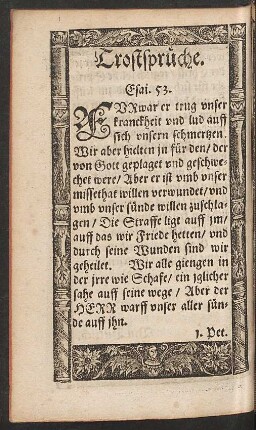 Trostsprüche.
Esai. 53.
FVRwar er trug vnser
kranckheit vnd lud auff
sich vnsern schmertzen.
Wir aber hielten jn für den/ der
von Gott geplaget vnd geschwe-
chet were/ Aber er ist vmb vnser
missethat willen verwundet/ vnd
vmb vnser sünde willen zuschla-
gen/ Die Straffe ligt auff jm/
auff das wir Friede hetten/ vnd
durch seine Wunden sind wir
geheilet. Wir alle giengen in
der jrre wie Schafe/ ein jglicher
sahe auff seine wege/ Aber der
HERR warff vnser aller sün-
de auff jhn.
1. Pet.